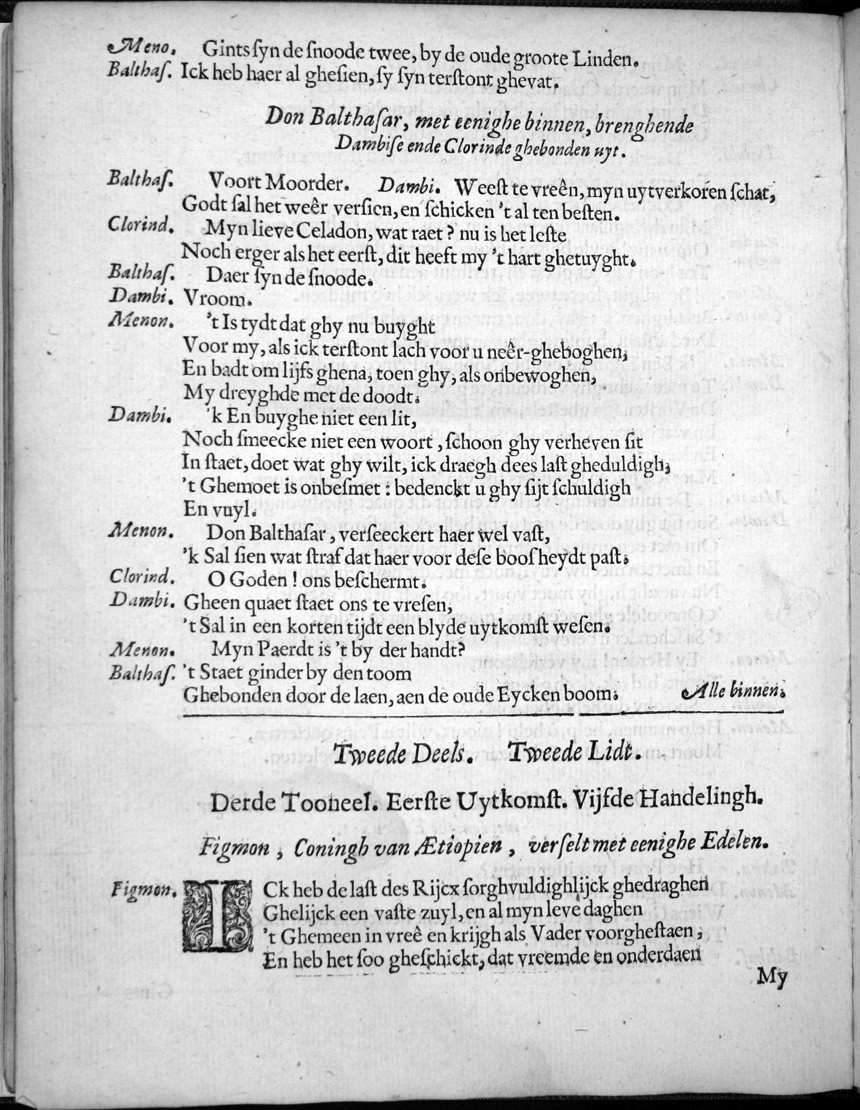 Meno. Gints ſyn de ſnoode twee, by de oude groote Linden.
Balthaſ. Ick heb haer al gheſien, ſy ſyn terſtont ghevat.
Don Balthaſar, met eenighe binnen, brenghende
Dambiſe ende Clorinde ghebonden uyt.
Balthaſ. Voort Moorder. Dambi. Weeſt te vreên, myn uytverkoren ſchat,
Godt ſal het weêr verſien, en ſchicken 't al ten beſten.
Clorind. Myn lieve Celadon, wat raet? nu is het leſte
Noch erger als het eerſt, dit heeft my 't hart ghetuyght.
Balthaſ. Daer ſyn de ſnoode.
Dambi. Vroom.
Menon. 't Is tydt dat ghy nu buyght
Voor my, als ick terſtont lach voor u neêr-gheboghen,
En badt om lijfs ghena, toen ghy, als onbewoghen,
My dreyghde met de doodt.
Dambi. 'k En buyghe niet een lit,
Noch ſmeecke niet een woort, ſchoon ghy verheven ſit
In ſtaet, doet wat ghy wilt, ick draegh dees laſt gheduldigh,
't Ghemoet is onbeſmet: bedenckt u ghy ſijt ſchuldigh
En vuyl.
Menon. Don Balthaſar, verſeeckert haer wel vaſt,
'k Sal ſien wat ſtraf dat haer voor deſe boosheydt paſt.
Clorind. O Goden! ons beſchermt.
Dambi. Gheen quaet ſtaet ons te vreſen,
't Sal in een korten tijdt een blyde uytkomſt weſen.
Menon. Myn Paerdt is 't by der handt?
Balthaſ. 't Staet ginder by den toom
Ghebonden door de laen, aen de oude Eycken boom. Alle binnen.
Tweede Deels. Tweede Lidt.
Derde Tooneel. Eerſte Uytkomſt. Vijfde Handelingh.
Figmon, Coningh van Ætiopien, verſelt met eenighe Edelen.
Figmon. ICk heb de laſt des Rijcx ſorghvuldighlijck ghedraghen
Ghelijck een vaſte zuyl, en al myn leve daghen
't Ghemeen in vreê en krijgh als Vader voorgheſtaen;
En heb het ſoo gheſchickt, dat vreemde en onderdaen
My